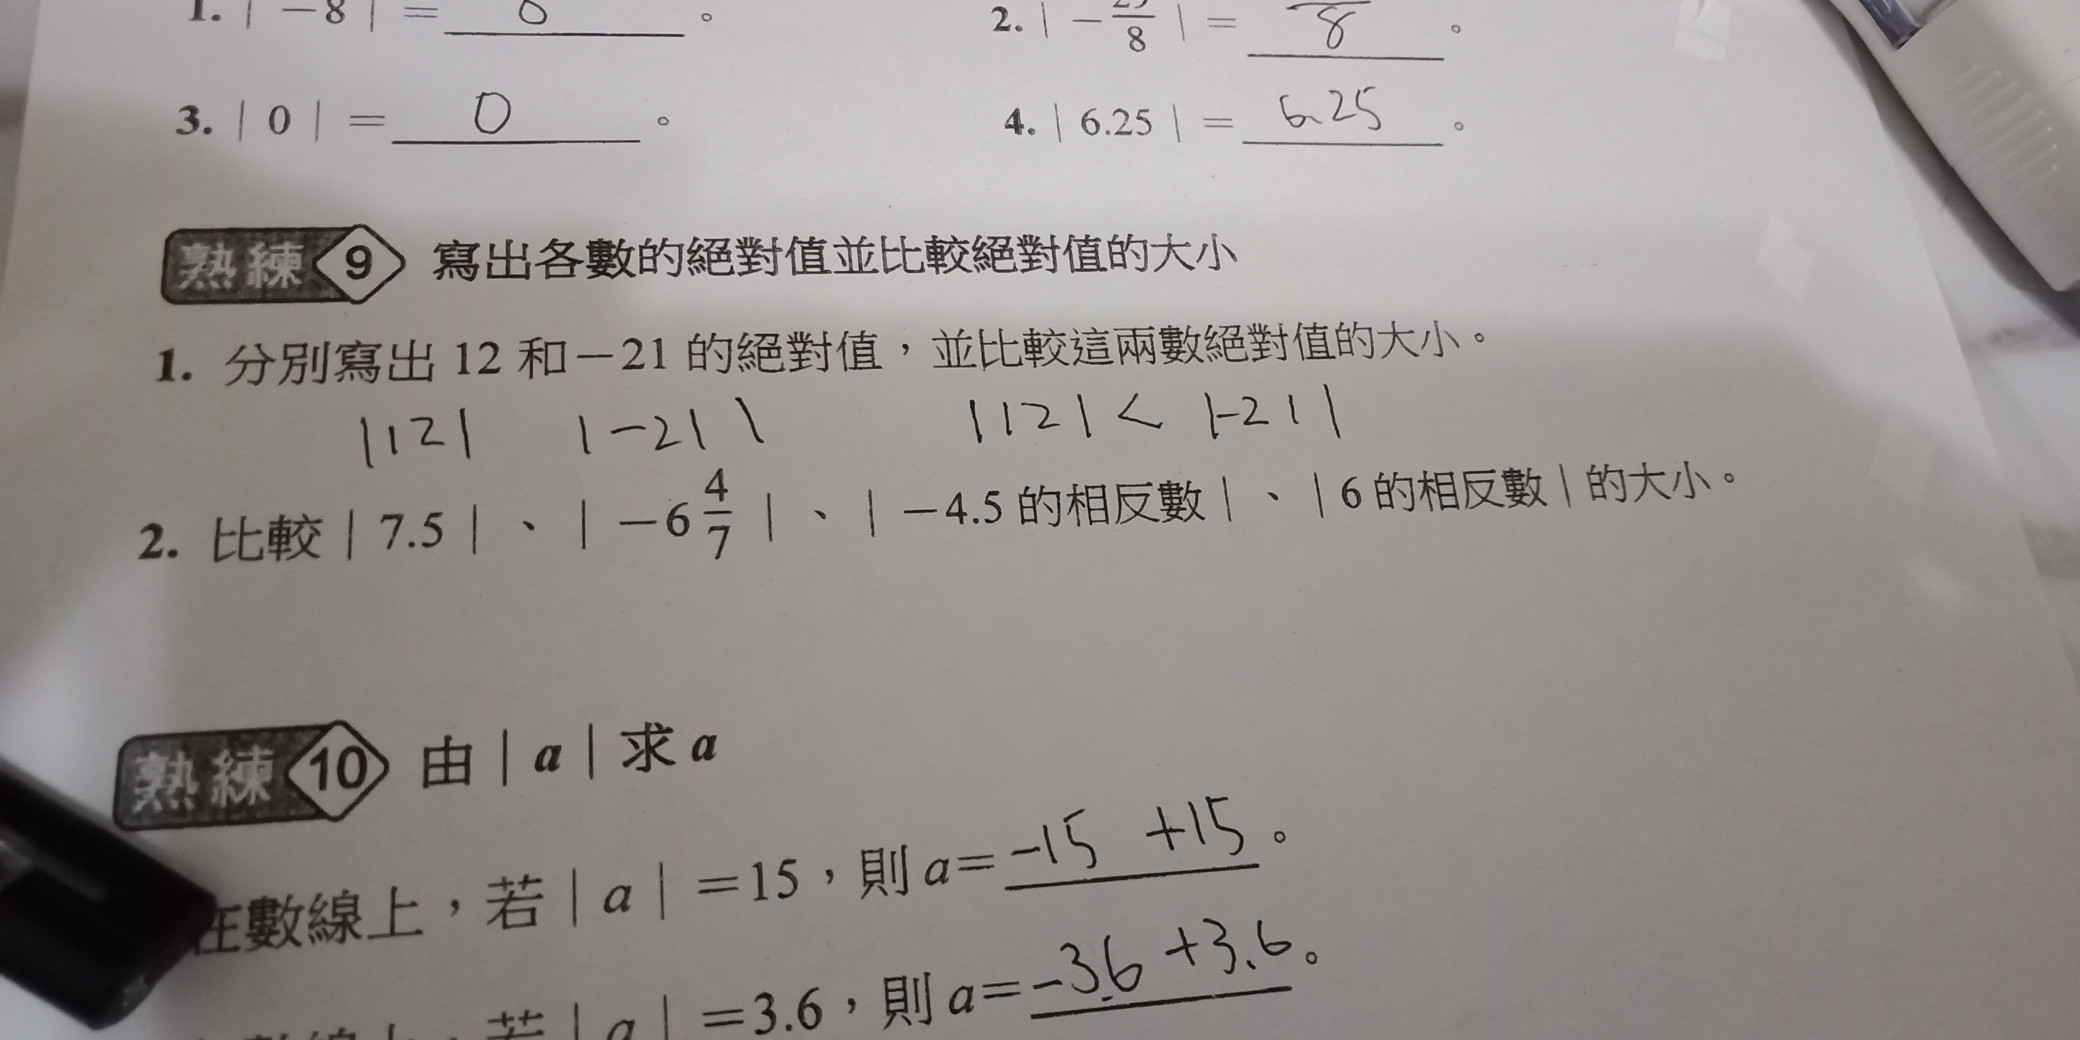 1. | －8 | ＝ 8 。
2. | － /8 | ＝ /8 。
3. | 0 | ＝ 0 。
4. | 6.25 | ＝ 6.25 。
熟練 9 寫出各數的絕對值並比較絕對值的大小
1. 分別寫出 12 和－21 的絕對值，並比較這兩數絕對值的大小。
|12| |-21| |12| < |-21|
2. 比較 | 7.5 | 、 | －6 4/7 | 、 | －4.5 的相反數 | 、 | 6 的相反數 | 的大小。
熟練 10 由 | a | 求 a
在數線上，若 | a | ＝15，則 a＝ -15 +15 。
若 | a | ＝3.6，則 a＝ -3.6 +3.6 。